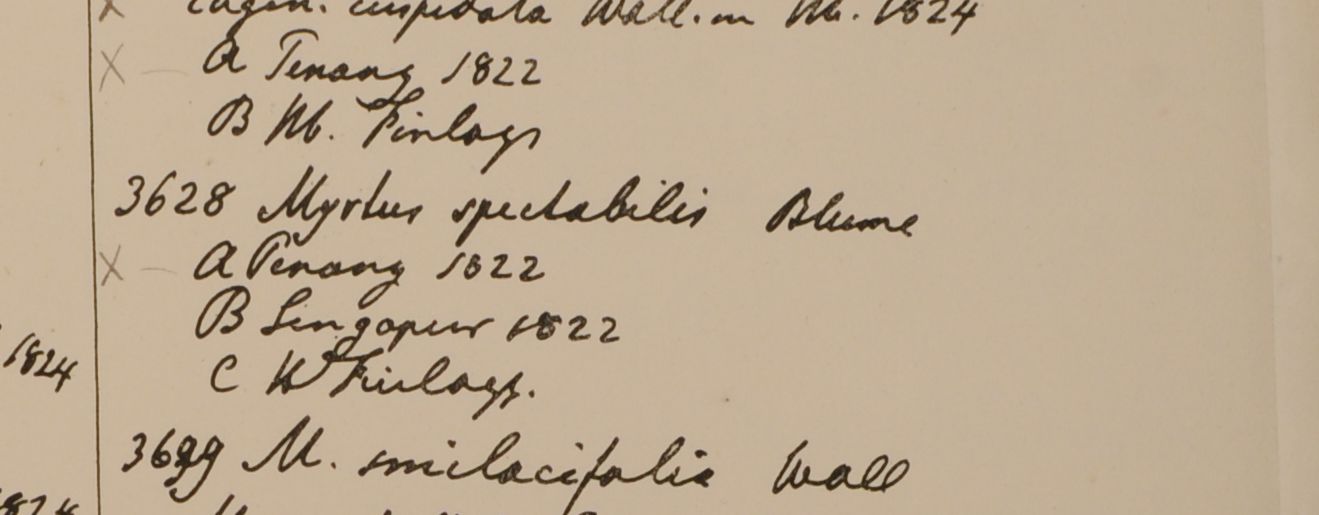 Eugen. cuspidata Wall. in Hb. 1824
X — A Penang 1822
B Hb. Finlays
3628 Myrtus spectabilis Blume
X — A Penang 1822
B Singapur 1822
1824
C Hb Finlays.
3629 M. smilacifolia Wall